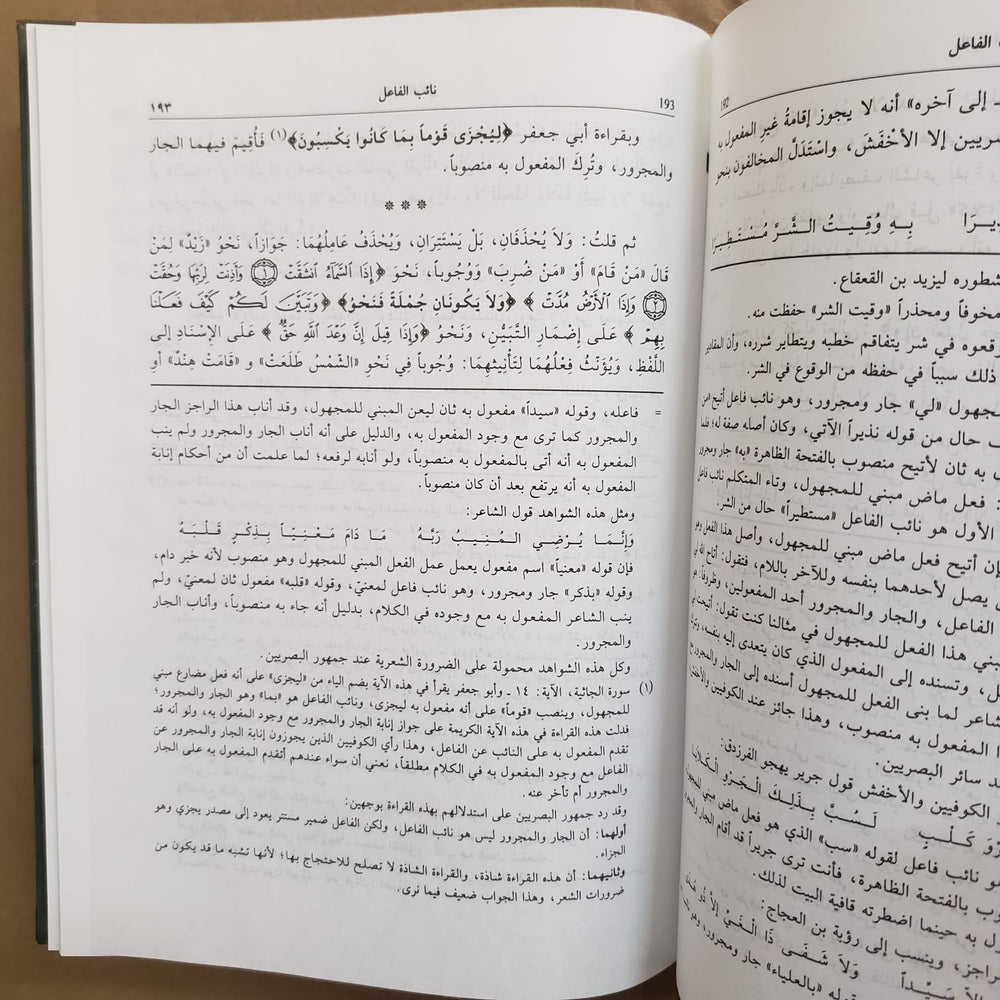 ـب الفاعل
192
ـ إلى آخره» أنه لا يجوز إقامةُ غيرِ المفعول به
ـصريين إلا الأخْفَش، واسْتَدَلَّ المخالفون بنحو
ـيرَا بِهِ وُقِيتُ الشَّرَّ مُسْتَطِيرَا
ـشطوره ليزيد بن القعقاع.
مخوفاً ومحذراً «وقيت الشر» حفظت منه.
وقعوه في شر يتفاقم خطبه ويتطاير شرره، وأن المقادير
ذلك سبباً في حفظه من الوقوع في الشر.
ـجهول «لي» جار ومجرور، وهو نائب فاعل أتيح «من
ـف حال من قوله نذيراً الآتي، وكان أصله صفة له؛ فلما
ـل به ثان لأتيح منصوب بالفتحة الظاهرة «به» جار ومجرور
فعل ماض مبني للمجهول، وتاء المتكلم نائب فاعل
الأول هو نائب الفاعل «مستطيراً» حال من الشر.
ـإن أتيح فعل ماض مبني للمجهول، وأصل هذا الفعل وهو
يصل لأحدهما بنفسه وللآخر باللام، فتقول: أتاح الله لي
الفاعل، والجار والمجرور أحد المفعولين،
ـبني هذا الفعل للمجهول في مثالنا كنت تقول: أتيحت
ـل، وتسنده إلى المفعول الذي كان يتعدى إليه بنفسه،
ـشاعر لما بنى الفعل للمجهول أسنده إلى الجار والمجرور
ـا المفعول به منصوب، وهذا جائز عند الكوفيين والأخفش
ـد سائر البصريين.
الكوفيين والأخفش قول جرير يهجو الفرزدق:
ـرْوَ كَلْبٍ لَسُبَّ بِذَلِكَ الْجَرْوِ الْكِلَابَا
ـو نائب فاعل لقوله «سب» الذي هو فعل ماض مبني للمجهول
ـوب بالفتحة الظاهرة، فأنت ترى جريراً قد أقام الجار
ـل به حينما اضطرته قافية البيت لذلك.
ـراجز، وينسب إلى رؤبة بن العجاج:
ـلَّا سَيِّداً وَلاَ شَفَى ذَا الْغَيِّ إلاَّ ذُو هُدَى
قوله «بالعلياء» جار ومجرور، وهو
193 نائب الفاعل ١٩٣
وبقراءة أبي جعفر ﴿لِيُجْزَى قَوْماً بِمَا كَانُوا يَكْسِبُونَ﴾(١) فَأُقِيمَ فيهما الجار
والمجرور، وتُرِكَ المفعول به منصوباً.
* * *
ثم قلتُ: وَلاَ يُحْذَفَانِ، بَلْ يَسْتَتِرَانِ، وَيُحْذَفُ عَامِلُهُمَا: جَوَازاً، نَحْوُ «زَيْدٌ» لِمَنْ
قَالَ «مَنْ قَامَ» أَوْ «مَنْ ضُرِبَ» وَوُجُوباً، نَحْوَ ﴿إِذَا السَّمَاءُ انشَقَّتْ ۝١ وَأَذِنَتْ لِرَبِّهَا وَحُقَّتْ
۝٢ وَإِذَا الْأَرْضُ مُدَّتْ﴾ ﴿وَلاَ يَكُونَانِ جُمْلَةً فَنَحْوُ﴾ ﴿وَتَبَيَّنَ لَكُمْ كَيْفَ فَعَلْنَا
بِهِمْ﴾ عَلَى إِضْمَارِ التَّبَيُّنِ، وَنَحْوُ ﴿وَإِذَا قِيلَ إِنَّ وَعْدَ اللَّهِ حَقٌّ﴾ عَلَى الإِسْنَادِ إِلى
اللَّفْظِ، وَيُؤَنَّثُ فِعْلُهُمَا لِتَأْنِيثِهِمَا: وُجُوباً فِي نَحْوِ «الشَّمْسُ طَلَعَتْ» و «قَامَتْ هِنْدٌ» أَوِ
= فاعله، وقوله «سيداً» مفعول به ثان ليعن المبني للمجهول، وقد أناب هذا الراجز الجار
والمجرور كما ترى مع وجود المفعول به، والدليل على أنه أناب الجار والمجرور ولم ينب
المفعول به أنه أتى بالمفعول به منصوباً، ولو أنابه لرفعه؛ لما علمت أن من أحكام إنابة
المفعول به أنه يرتفع بعد أن كان منصوباً.
ومثل هذه الشواهد قول الشاعر:
وَإِنَّمَا يُرْضِي الْمُنِيبُ رَبَّهُ مَا دَامَ مَعْنِيّاً بِذِكْرٍ قَلْبَهُ
فإن قوله «معنياً» اسم مفعول يعمل عمل الفعل المبني للمجهول وهو منصوب لأنه خبر دام،
وقوله «بذكر» جار ومجرور، وهو نائب فاعل لمعنيّ، وقوله «قلبه» مفعول ثان لمعنيّ، ولم
ينب الشاعر المفعول به مع وجوده في الكلام، بدليل أنه جاء به منصوباً، وأناب الجار
والمجرور.
وكل هذه الشواهد محمولة على الضرورة الشعرية عند جمهور البصريين.
(١) سورة الجاثية، الآية: ١٤ ـ وأبو جعفر يقرأ في هذه الآية بضم الياء من «ليجزى» على أنه فعل مضارع مبني
للمجهول، وينصب «قوماً» على أنه مفعول به ليجزى، ونائب الفاعل هو «بما» وهو جار والمجرور؛
فدلت هذه القراءة في هذه الآية الكريمة على جواز إنابة الجار والمجرور مع وجود المفعول به، ولو أنه قد
تقدم المفعول به على النائب عن الفاعل، وهذا رأي الكوفيين الذين يجوزون إنابة الجار والمجرور عن
الفاعل مع وجود المفعول به في الكلام مطلقاً، نعني أن سواء عندهم أتقدم المفعول به على الجار
والمجرور أم تأخر عنه.
وقد رد جمهور البصريين على استدلالهم بهذه القراءة بوجهين:
أولهما: أن الجار والمجرور ليس هو نائب الفاعل، ولكن الفاعل ضمير مستتر يعود إلى مصدر يجزي وهو
الجزاء.
وثانيهما: أن هذه القراءة شاذة، والقراءة الشاذة لا تصلح للاحتجاج بها؛ لأنها تشبه ما قد يكون من
ضرورات الشعر، وهذا الجواب ضعيف فيما نرى.